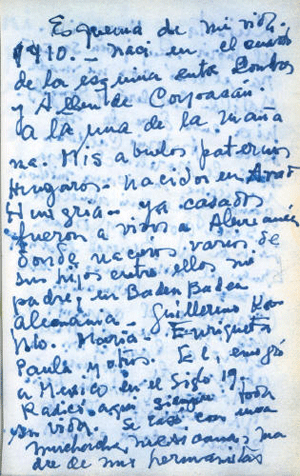 Esquema de mi vida.
1910. – Nací en el cuarto
de la esquina entre Londres
y Allende Coyoacan.
a la una de la maña
na. Mis abuelos paternos
Hungaros – nacidos en Arat
Hungria – ya casados
fueron a vivir a Alemania
donde nacieron varios de
sus hijos entre ellos mi
padre, en Baden Baden
Alemania – Guillermo Kahlo
Maria – Enriqueta
Paula y otros. El, emigró
a Mexico en el Siglo 19.
Radicó aqui siempre toda
su vida. Se casó con una
muchacha, mexicana, ma
dre de mis hermanitas